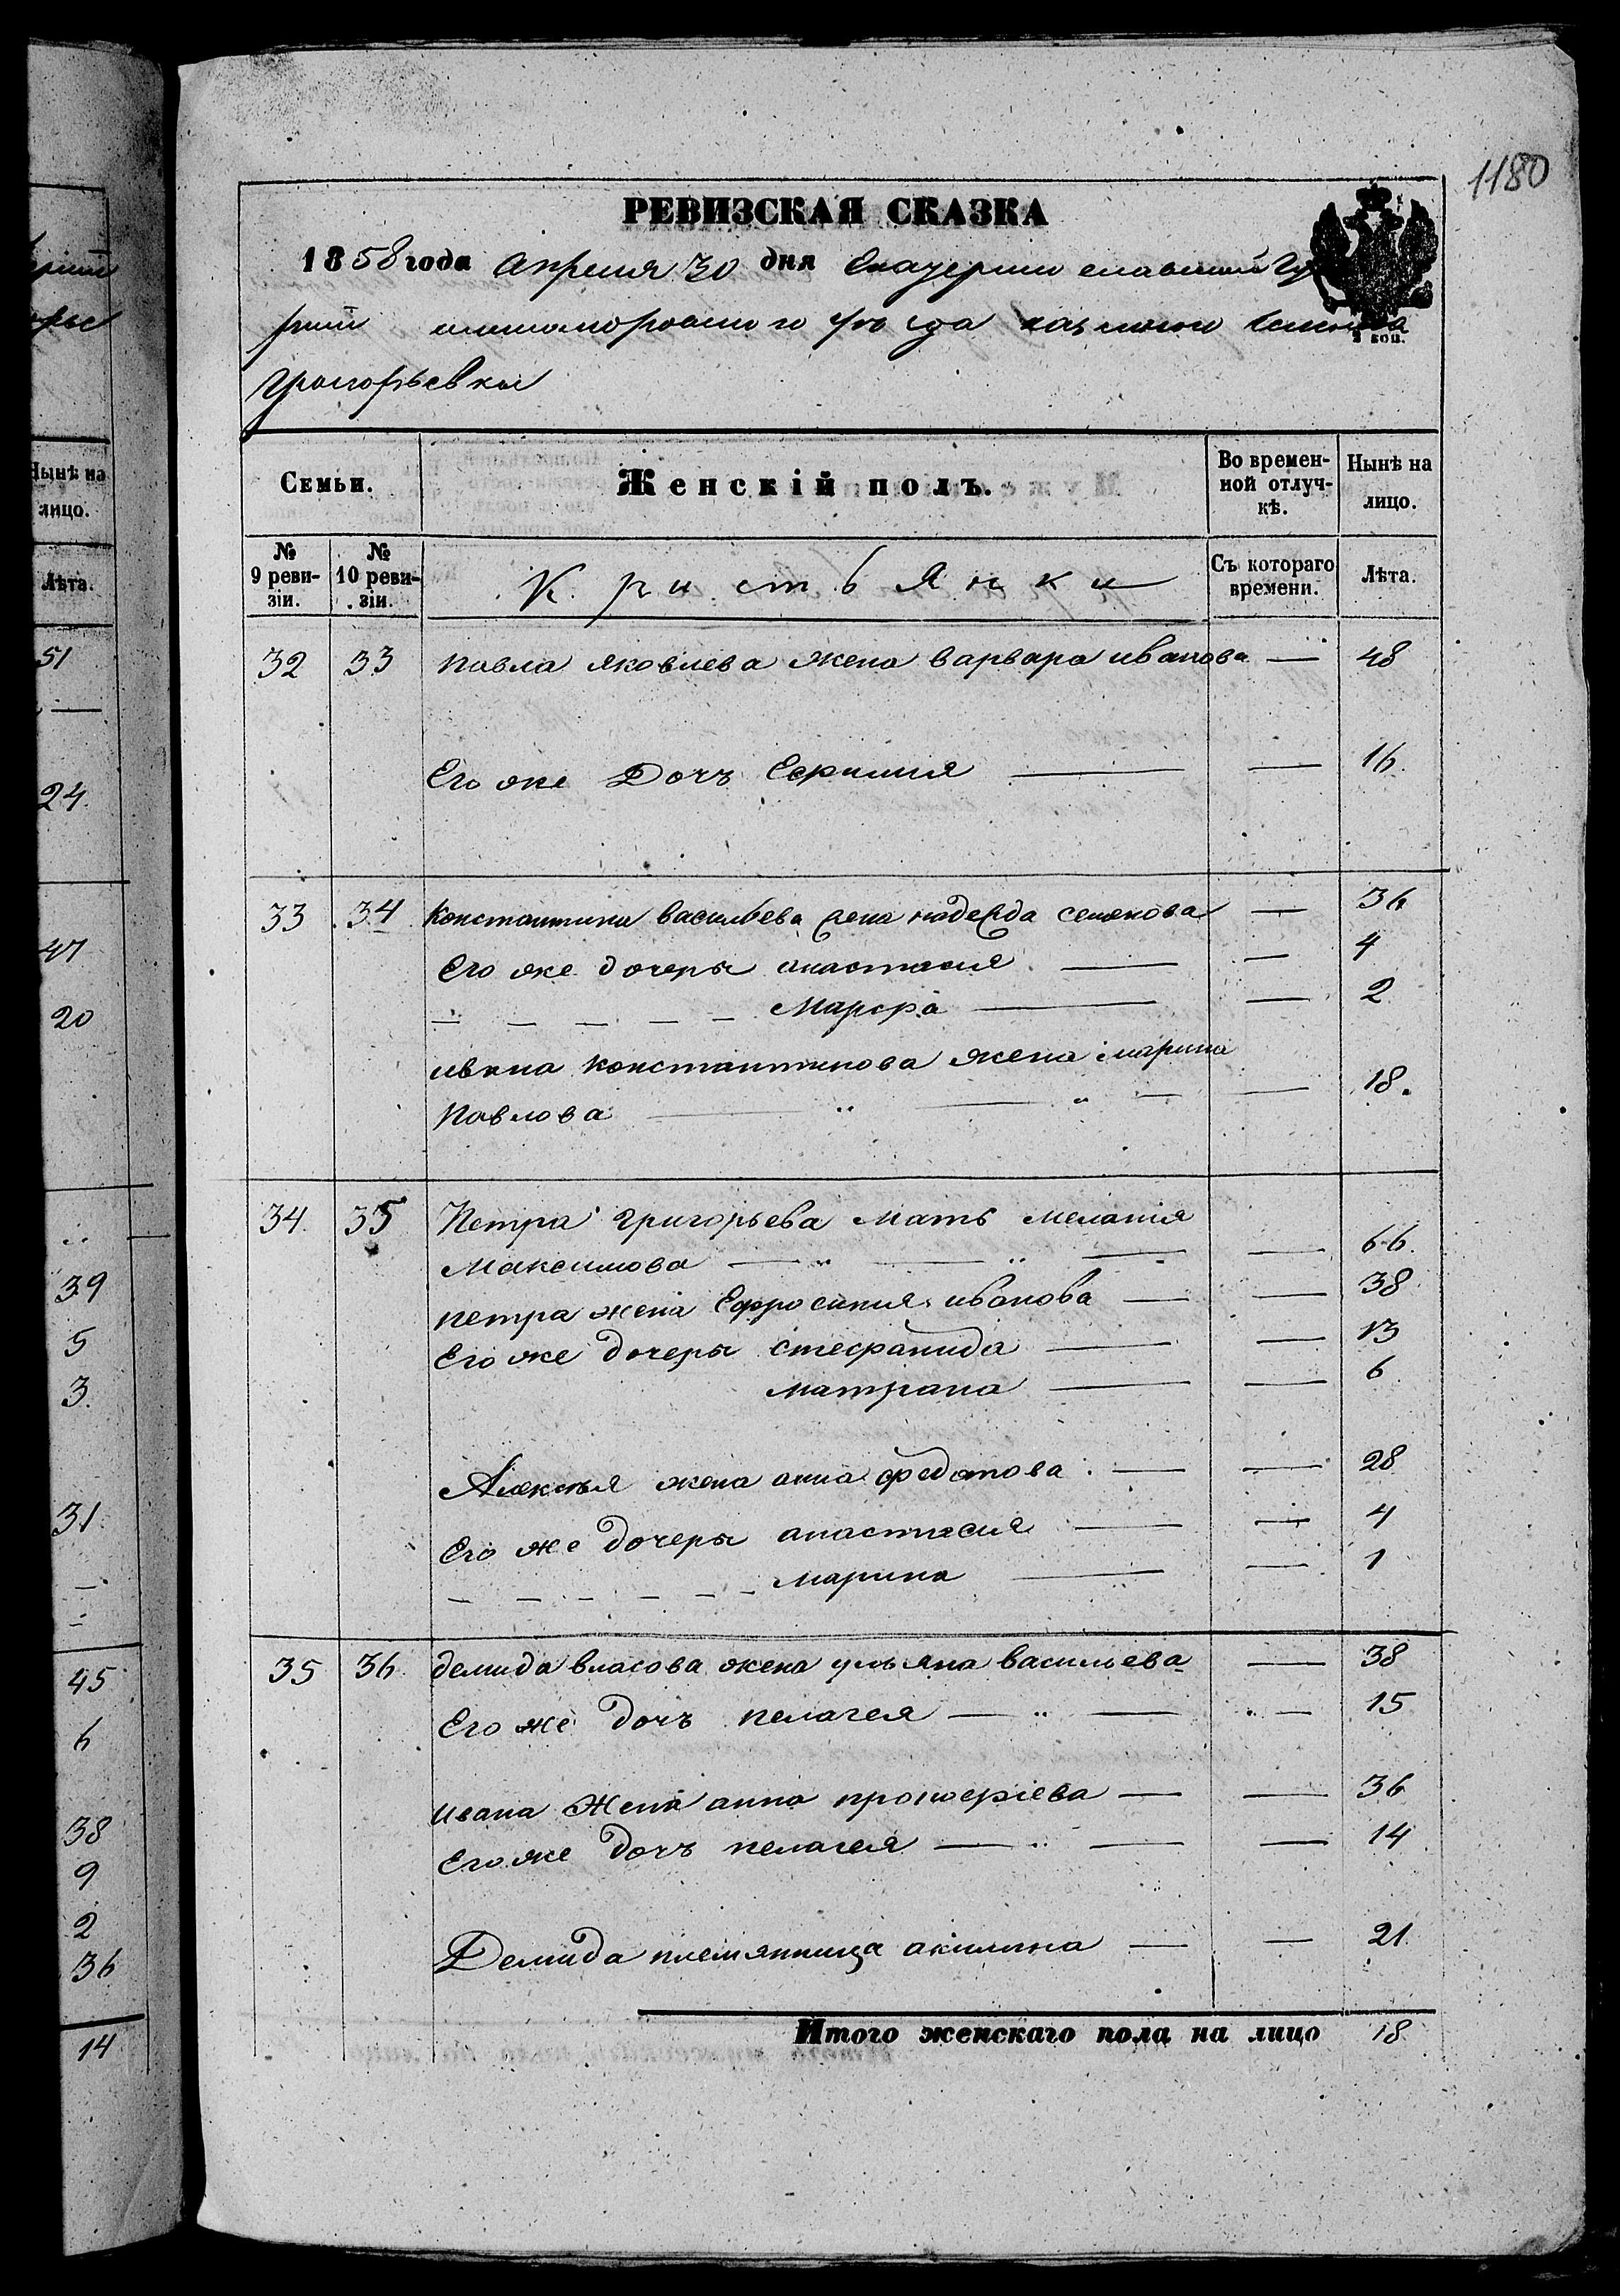 1180
РЕВИЗСКАЯ СКАЗКА
1858 года Апреля 30 дня Екатеринославской Гу
рнии уезда казенного селения
Григорьевки
2 коп.
Семьи.
Женскій полъ.
Во времен-
ной отлуч-
кѣ.
Нынѣ на
лицо.
№
9 реви-
зіи.
№
10 реви-
зіи.
Кристьянки
Съ котораго
времени.
Лѣта.
32 33 Павла яковлева жена варвара иванова — 48
Его же Дочъ Ефимия — — 16
33 34 Константина васильева жена надежда семенова — 36
Его же дочеры анастасия — — 4
— — — — — Марфа — — 2
ивана константинова жена марина
Павлова — " — " — — 18.
34. 35 Петра григорьева мать мелания
Максимова — " — " — — 66.
петра жена Ефросиния иванова — — 38
Его же дочеры стефанида — — 13
матрана — — 6
Алексѣя жена анна федотова. — — 28
Его же дочеры анастасия — — 4
— — — — — — марина — — 1
35 36. демида власова жена ульяна васильева — 38
Его же дочъ пелагея — " — " — 15
ивана Жена анна прокофіева — — 36
Его же дочъ пелагея — " — — 14
Демида племянница акилина — — 21
Итого женскаго пола на лицо 18
Нынѣ на
лицо.
Лѣта.
51
24.
47
20
39
5
3.
31.
45
6
38
9
2
36
14